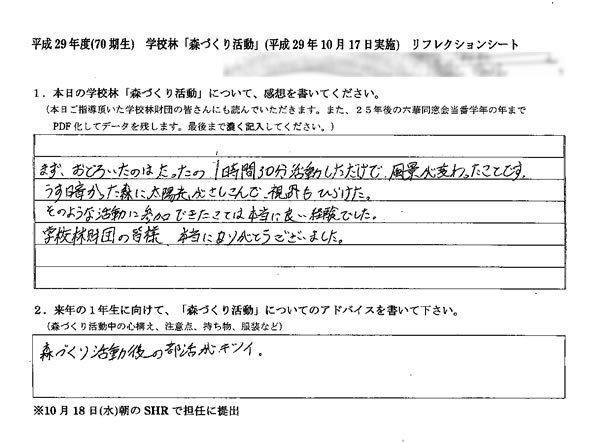 平成29年度(70期生)　学校林「森づくり活動」(平成29年10月17日実施)　リフレクションシート
1．本日の学校林「森づくり活動」について、感想を書いてください。
（本日ご指導頂いた学校林財団の皆さんにも読んでいただきます。また、２５年後の六華同窓会当番学年の年まで
PDF化してデータを残します。最後まで濃く記入してください。）
まず、おどろいたのはたったの1時間30分活動しただけで、風景が変わったことです。
うす暗かった森に太陽光がさしこんで、視界もひらけた。
そのような活動に参加できたことは本当に良い経験でした。
学校林財団の皆様　本当にありがとうございました。
2．来年の1年生に向けて、「森づくり活動」についてのアドバイスを書いて下さい。
（森づくり活動中の心構え、注意点、持ち物、服装など）
森づくり活動後の部活がキツイ。
※10月18日(水)朝のSHRで担任に提出